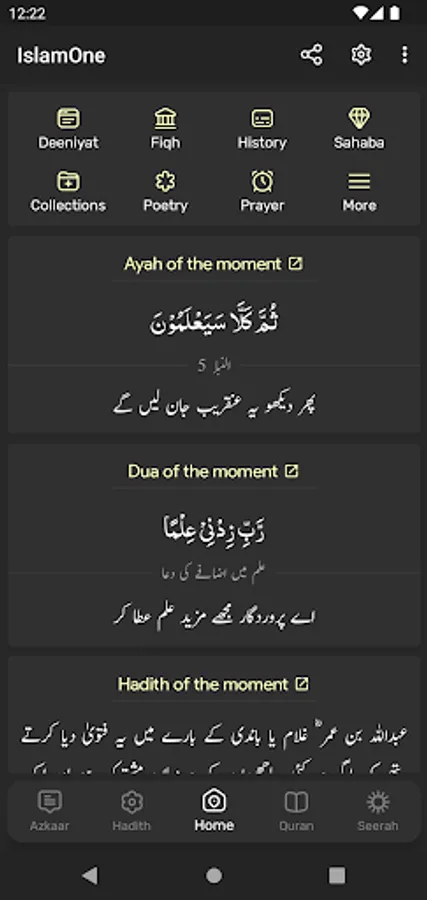 12:22
IslamOne
Deeniyat Fiqh History Sahaba
Collections Poetry Prayer More
Ayah of the moment
ثُمَّ كَلَّا سَيَعْلَمُوْنَ
النبإ 5
پھر دیکھو یہ عنقریب جان لیں گے
Dua of the moment
رَّبِّ زِدْنِيْ عِلْمًا
علم میں اضافے کی دعا
اے پروردگار مجھے مزید علم عطا کر
Hadith of the moment
عبداللہ بن عمرؓ غلام یا باندی کے بارے میں یہ فتویٰ دیا کرتے
Azkaar Hadith Home Quran Seerah